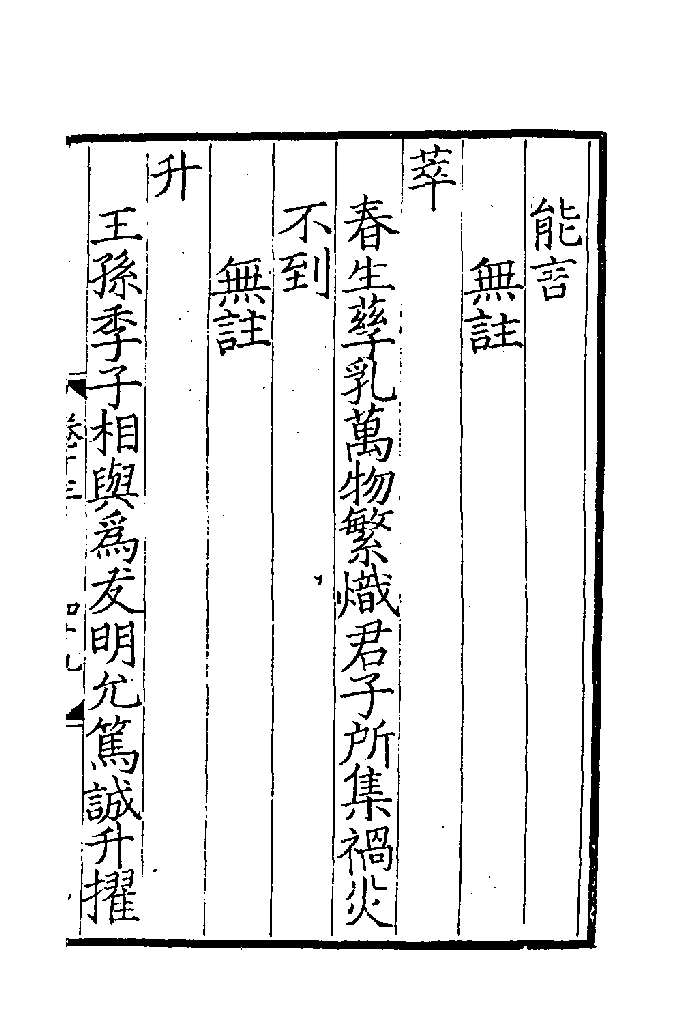 能言
無註
萃
春生孳乳萬物繁熾君子所集禍災
不到
無註
升
王孫季子相與爲友明允篤誠升擢
卷十三
四十九